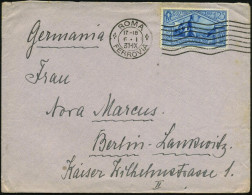 Germania
ROMA
FERROVIA
Frau
Nora Marcus.
Berlin-Lankwitz.
Kaiser Wilhelmstrasse
II.